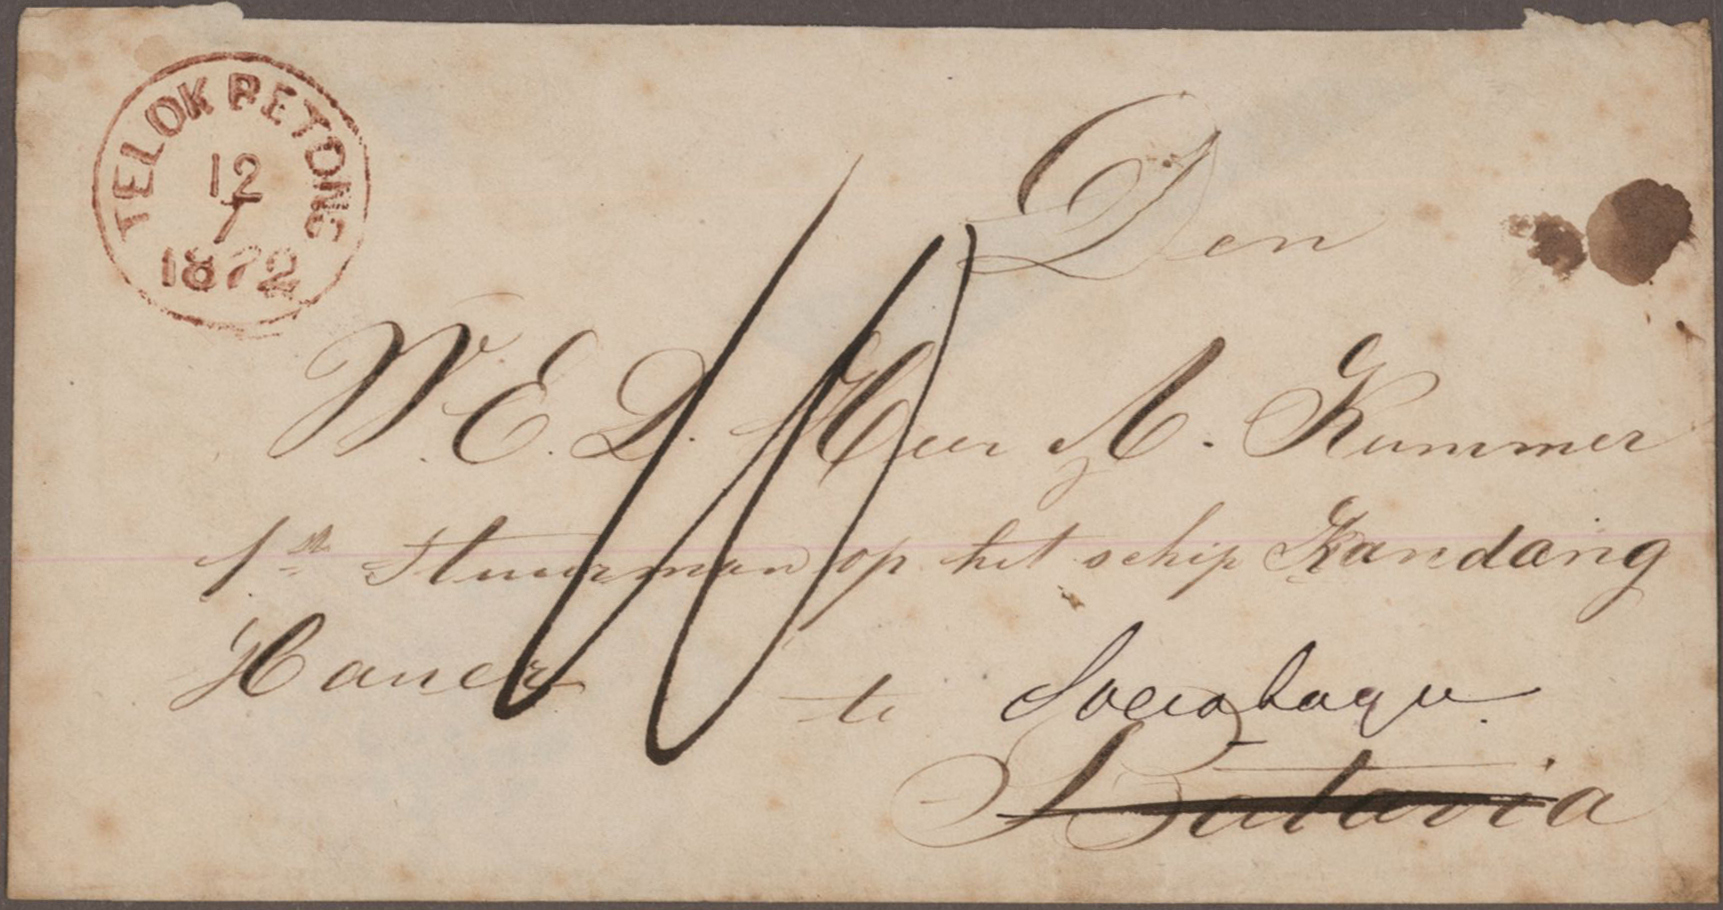 TELOK BETONG
12
7
1872
Den
W. E. D. Heer A. Kummer
1st Stuurman op het schip Kandang
Hauer
te Soerabaya
Batavia